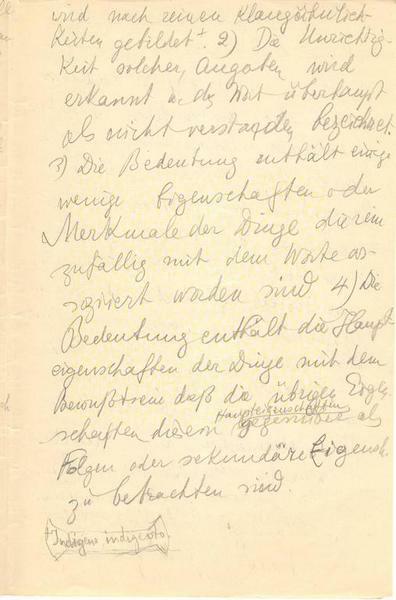 wird nach reinen Klangähnlich-
keiten gebildet. 2) Die Unrichtig-
keit solcher Angaben wird
erkannt u. das Wort überhaupt
als nicht verstanden bezeichnet.
3) Die Bedeutung enthält einige
wenige Eigenschaften oder
Merkmale der Dinge die rein
zufällig mit dem Worte as-
soziiert worden sind 4) Die
Bedeutung enthält die Haupt-
eigenschaften der Dinge mit dem
Bewußtsein daß die übrigen Eigen-
Haupteigenschaften
schaften diesen gegenüber als
Folgen oder sekundäre Eigensch.
zu betrachten sind.